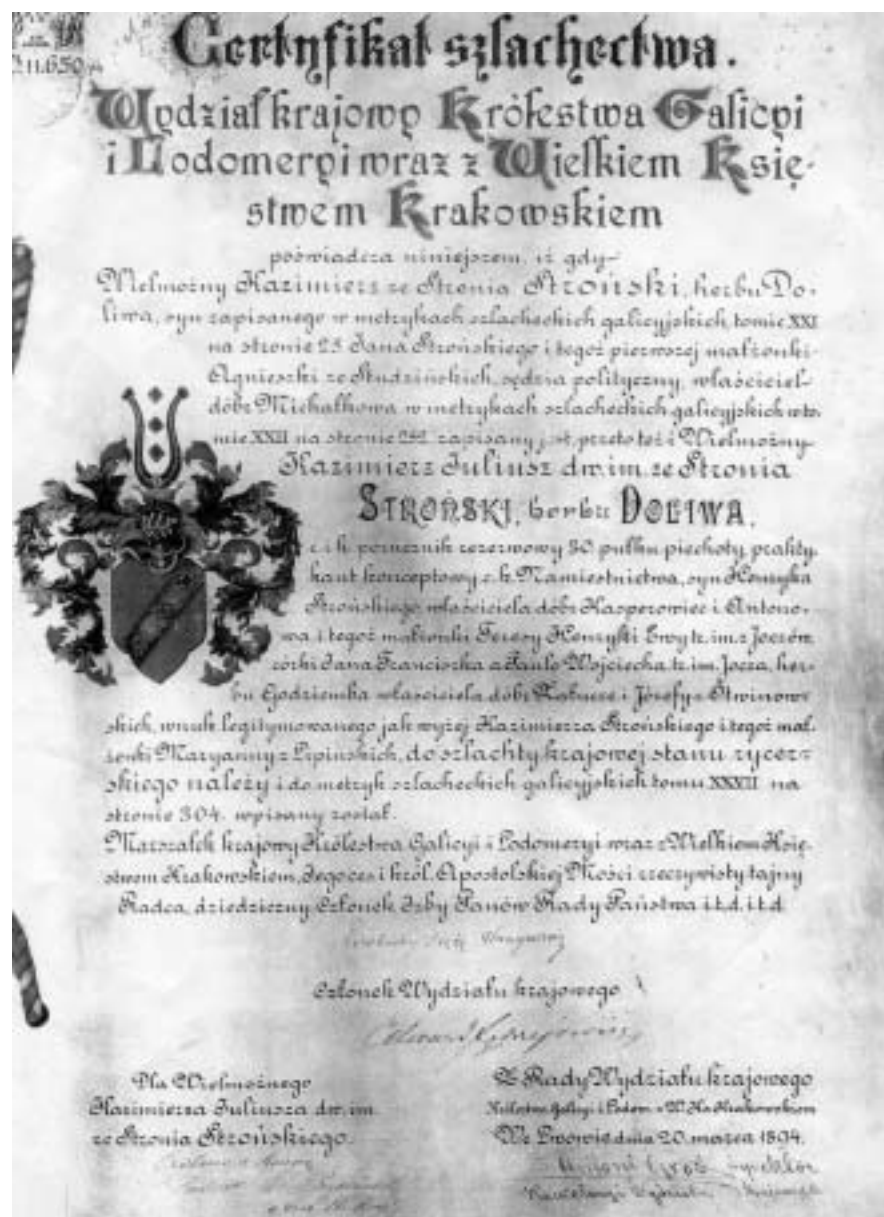 11.650
Certyfikat szlachectwa.
Wydział krajowy Królestwa Galicyi
i Lodomeryi wraz z Wielkiem Księ-
stwem Krakowskiem
poświadcza niniejszem, iż gdy
Wielmożny Kazimierz ze Stronia Stroński, herbu Do-
liwa, syn zapisanego w metrykach szlacheckich galicyjskich tomie XXI
na stronie 25 Jana Strońskiego i tegoż pierwszej małżonki
Agnieszki ze Studzińskich, sędzia polityczny, właściciel
dóbr Michałkowa w metrykach szlacheckich galicyjskich w to-
mie XXII na stronie 292 zapisany jest, przeto też i Wielmożny
Kazimierz Juliusz dw. im. ze Stronia
STROŃSKI, herbu DOLIWA,
c. i k. porucznik rezerwowy 30 pułku piechoty, prakty-
kant konceptowy c. k. Namiestnictwa, syn Henryka
Strońskiego właściciela dóbr Kasperowiec i Antono-
wa i tegoż małżonki Teresy Henryki Ewy tr. im. z Joczów
córki Jana Franciszka a Paulo Wojciecha tr. im. Jocza, her-
bu Godziemba właściciela dóbr i Józefy z Otwinow-
skich, wnuk legitymowanego jak wyżej Kazimierza Strońskiego i tegoż mał-
żonki Maryanny z Lipińskich, do szlachty krajowej stanu rycer-
skiego należy i do metryk szlacheckich galicyjskich tomu XXXII na
stronie 304. wpisany został.
Marszałek krajowy Królestwa Galicyi i Lodomeryi wraz z Wielkiem Księ-
stwem Krakowskiem, Jego ces. i król. Apostolskiej Mości rzeczywisty tajny
Radca, dziedziczny Członek Izby Panów Rady Państwa i t. d. i t. d.
Członek Wydziału krajowego
Dla Wielmożnego
Kazimierza Juliusza dw. im.
ze Stronia Strońskiego.
Z Rady Wydziału krajowego
Królestwa Galicyi i Lodom. z W. Ks. Krakowskiem
We Lwowie dnia 20. marca 1894.